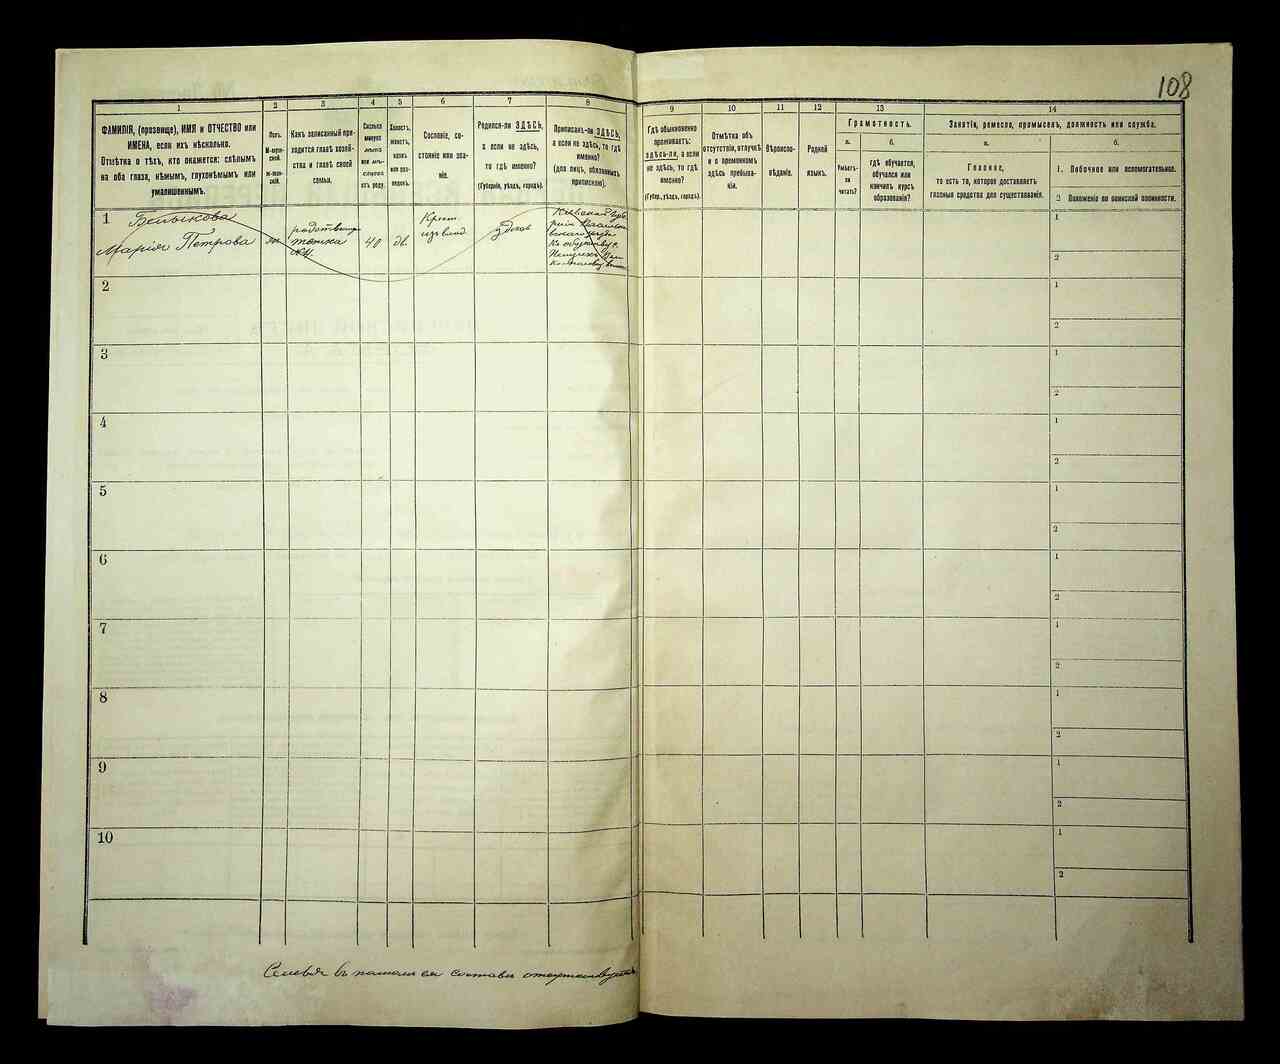 108
1
ФАМИЛІЯ, (прозвище), ИМЯ и ОТЧЕСТВО или
ИМЕНА, если ихъ нѣсколько.
Отмѣтка о тѣхъ, кто окажется: слѣпымъ
на оба глаза, нѣмымъ, глухонѣмымъ или
умалишеннымъ.
2
Полъ.
М-муж-
ской.
3
Какъ записанный при-
ходится главѣ хозяй-
ства и главѣ своей
семьи.
4
Сколько
минуло
лѣтъ
или мѣ-
сяцевъ
отъ роду.
5
Холостъ,
женатъ,
вдовъ
или раз-
веденъ.
6
Сословіе, со-
стояніе или зва-
ніе.
7
Родился-ли ЗДѢСЬ,
а если не здѣсь,
то гдѣ именно?
(Губернія, уѣздъ, городъ).
8
Приписанъ-ли ЗДѢСЬ,
а если не здѣсь, то гдѣ
именно?
(для лицъ, обязанныхъ
припискою).
9
Гдѣ обыкновенно
проживаетъ:
здѣсь-ли, а если
не здѣсь, то гдѣ
именно?
(Губер., уѣздъ, городъ).
10
Отмѣтка объ
отсутствіи, отлучкѣ
и о временномъ
здѣсь пребыва-
ніи.
11
Вѣроиспо-
вѣданіе.
12
Родной
языкъ.
13
Грамотность.
а.
Умѣетъ-
ли
читать?
б.
гдѣ обучается,
обучался или
кончилъ курсъ
образованія?
14
Занятія, ремесло, промыселъ, должность или служба.
а.
Главное,
то есть то, которое доставляетъ
главныя средства для существованія.
б.
1. Побочное или вспомогательное.
2 Положеніе по воинской повинности.
1
Марія Петрова
ж
родствен
40
вд.
Крест.
изъ влад
здѣсь
Кіевская губе
1
2
2
1
2
3
1
2
4
1
2
5
1
2
6
1
2
7
1
2
8
1
2
9
1
2
10
1
2
Семья въ полномъ ея составѣ отсутствуетъ